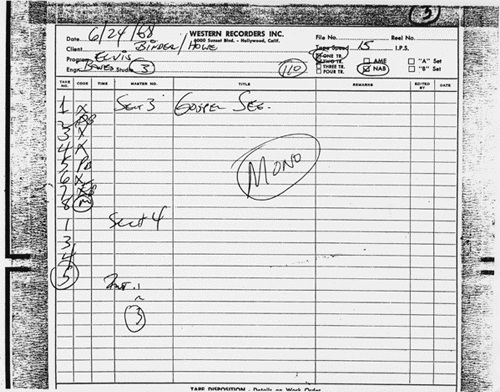 5
Date 6/24/68 WESTERN RECORDERS INC. File No. Reel No.
6000 Sunset Blvd. - Hollywood, Calif.
Client BINDER/HOWE Tape Speed 15 I.P.S.
Program ELVIS ONE TR. AME "A" Set
TWO TR.
Engr. Studio 3 110 THREE TR. NAB "B" Set
FOUR TR.
TAKE NO. CODE TIME MASTER NO. TITLE REMARKS EDITED BY DATE
1 X Sect 3 GOSPEL SEG.
2
3 X
4 X
5 PB
6 X
7
8 m
MONO
1 Sect 4
3
4
5
3
TAPE DISPOSITION - Details on Work Order